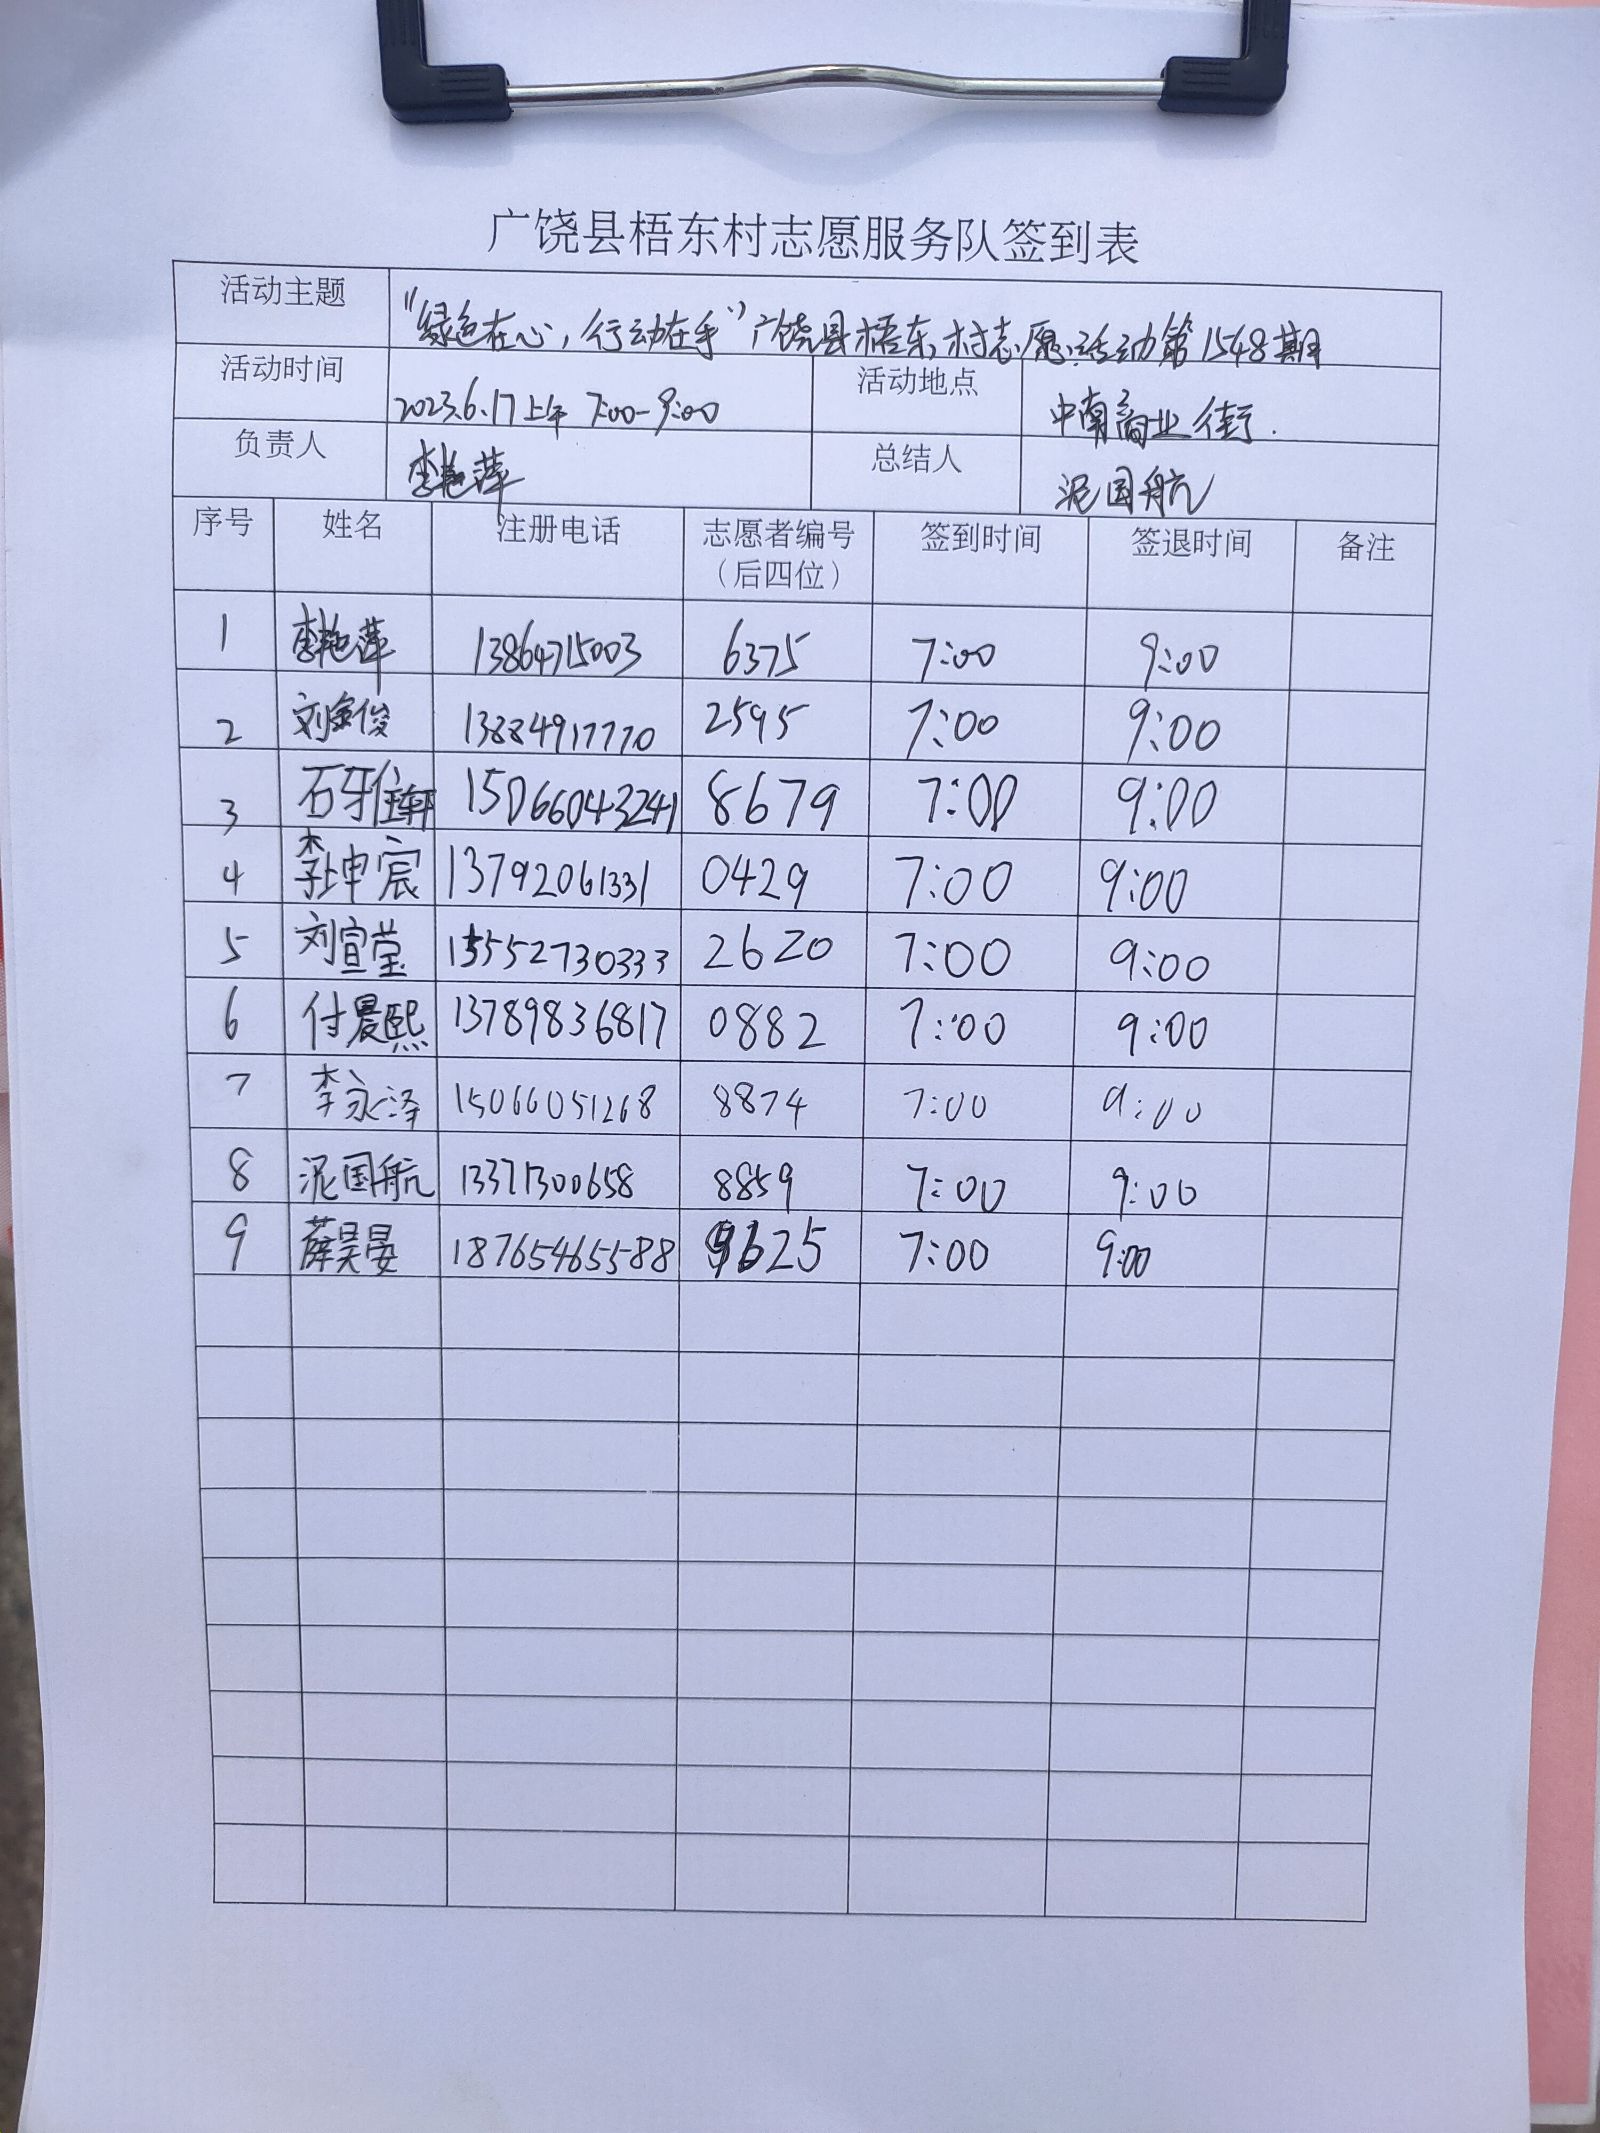 广饶县梧东村志愿服务队签到表
活动主题 "绿色在心,行动在手"广饶县梧东村志愿活动第1548期
活动时间 2023.6.17上午 7:00-9:00 活动地点 中南商业街.
负责人 李艳萍 总结人 泥国航
序号 姓名 注册电话 志愿者编号 签到时间 签退时间 备注
(后四位)
1 李艳萍 13864715003 6375 7:00 9:00
2 刘金俊 13884917770 2595 7:00 9:00
3 石雅轩 15066043241 8679 7:00 9:00
4 李坤宸 13792061331 0429 7:00 9:00
5 刘宣莹 15552730333 2620 7:00 9:00
6 付晨熙 13789836817 0882 7:00 9:00
7 李永泽 15066051268 8874 7:00 9:00
8 泥国航 13371300658 8859 7:00 9:00
9 薛昊晏 18765465588 9625 7:00 9:00